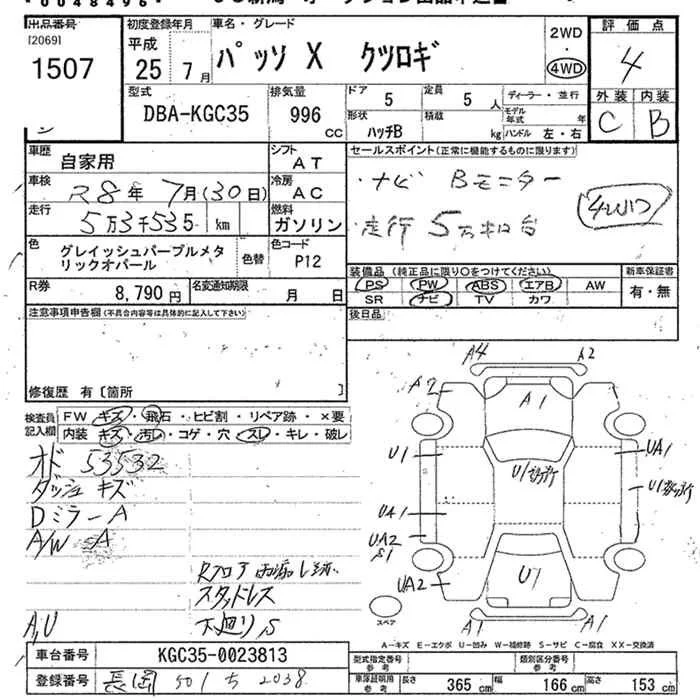 出品番号
[2069]
1507
初度登録年月
平成
25年 7月
車名・グレード
パッソ X クツロギ
2WD
・
4WD
評価点
4
外装 内装
C B
型式
DBA-KGC35
排気量
996 CC
ドア 5
定員 5人
形状 ハッチB
積載 kg
ディーラー・並行
モデル年式 年
ハンドル 左・右
車歴 自家用
シフト AT
セールスポイント(正常に機能するものに限ります)
車検 R8年 7月(30日)
冷房 AC
・ナビ Bモニター
走行 5万3千535 km
燃料 ガソリン
・走行5万キロ台
4WD
色 グレイッシュパープルメタリックオパール
色替
色コード P12
装備品(純正品に限り○をつけてください)
新車保証書
PS PW ABS エアB AW
有・無
SR ナビ TV カワ
R券 8,790円
名変通知期限 月 日
後日品
注意事項申告欄(不具合内容等は具体的に記入して下さい)
修復歴 有〔箇所 〕
検査員記入欄
FW キズ・飛石・ヒビ割・リペア跡・×要
内装 キズ・汚レ・コゲ・穴・スレ・キレ・破レ
オド 53532
ダッシュ キズ
Dミラー A
A/W A
Rフロア
スタッドレス
A,U
下廻り S
A4 A2
A2 A1
U1 U1 UA1
U1
UA1
UA2
S1
UA2 U1
A1 A1
スペア
A-キズ E-エクボ U-凹み W-補修跡 S-サビ C-腐食 XX-交換済
車台番号 KGC35-0023813
型式指定番号 参考
類別区分番号 参考
登録番号 長岡 501 ち 2038
車庫証明用 参考
長さ 365 cm
幅 166 cm
高さ 153 cm